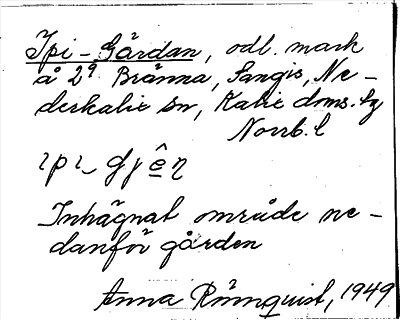 Ipi-Gärdan, odl. mark
å 2⁹ Bränna, Sangis, Ne-
derkalix sn, Kalix doms. tg
Norrb. l
Inhägnat område ne-
danför gården
Anna Rönnquist, 1949